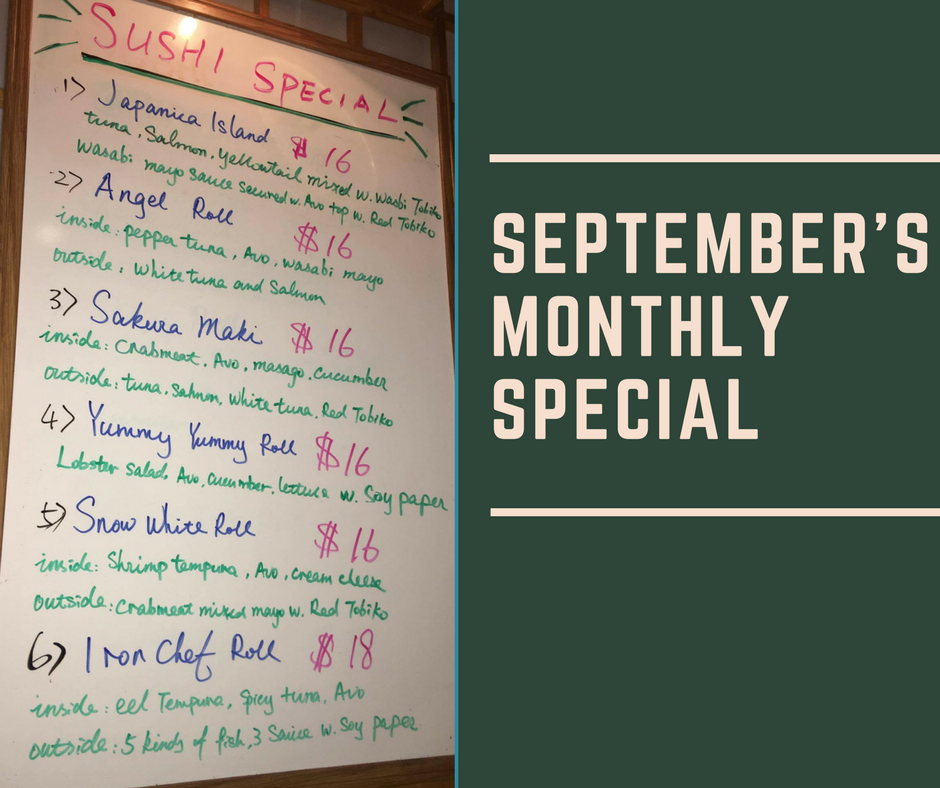 SUSHI SPECIAL
1) Japanica Island $16
tuna, Salmon, Yellowtail mixed w. Wasbi Tobiko
wasabi mayo sauce secured w. Avo top w. Red Tobiko
2) Angel Roll $16
inside: pepper tuna, Avo, wasabi mayo
outside: White tuna and Salmon
3) Sakura Maki $16
inside: Crabmeat, Avo, masago, cucumber
outside: tuna, Salmon, White tuna, Red Tobiko
4) Yummy Yummy Roll $16
Lobster salad, Avo, cucumber, lettuce w. Soy paper
5) Snow White Roll $16
inside: Shrimp tempura, Avo, cream cheese
outside: Crabmeat mixed mayo w. Red Tobiko
6) Iron Chef Roll $18
inside: eel Tempura, Spicy tuna, Avo
outside: 5 kinds of fish, 3 Sauce w. Soy paper
SEPTEMBER'S
MONTHLY
SPECIAL